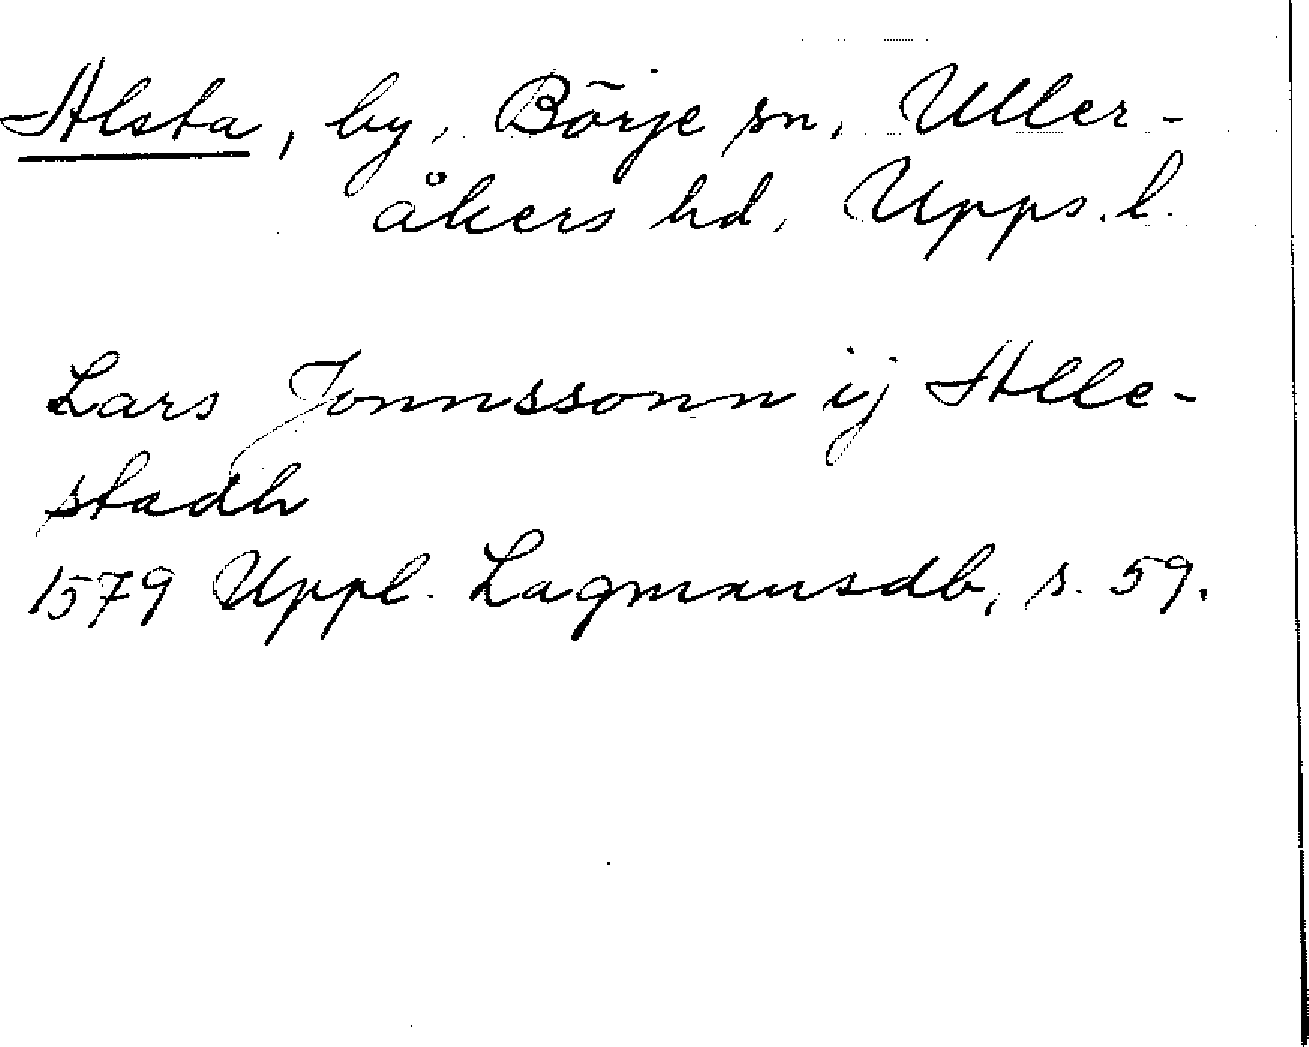 Alsta, by, Börje sn, Uller-
åkers hd, Upps. l.
Lars Jonnssonn ij Alle-
stadh
1579 Uppl. Lagmansdb, s. 59.